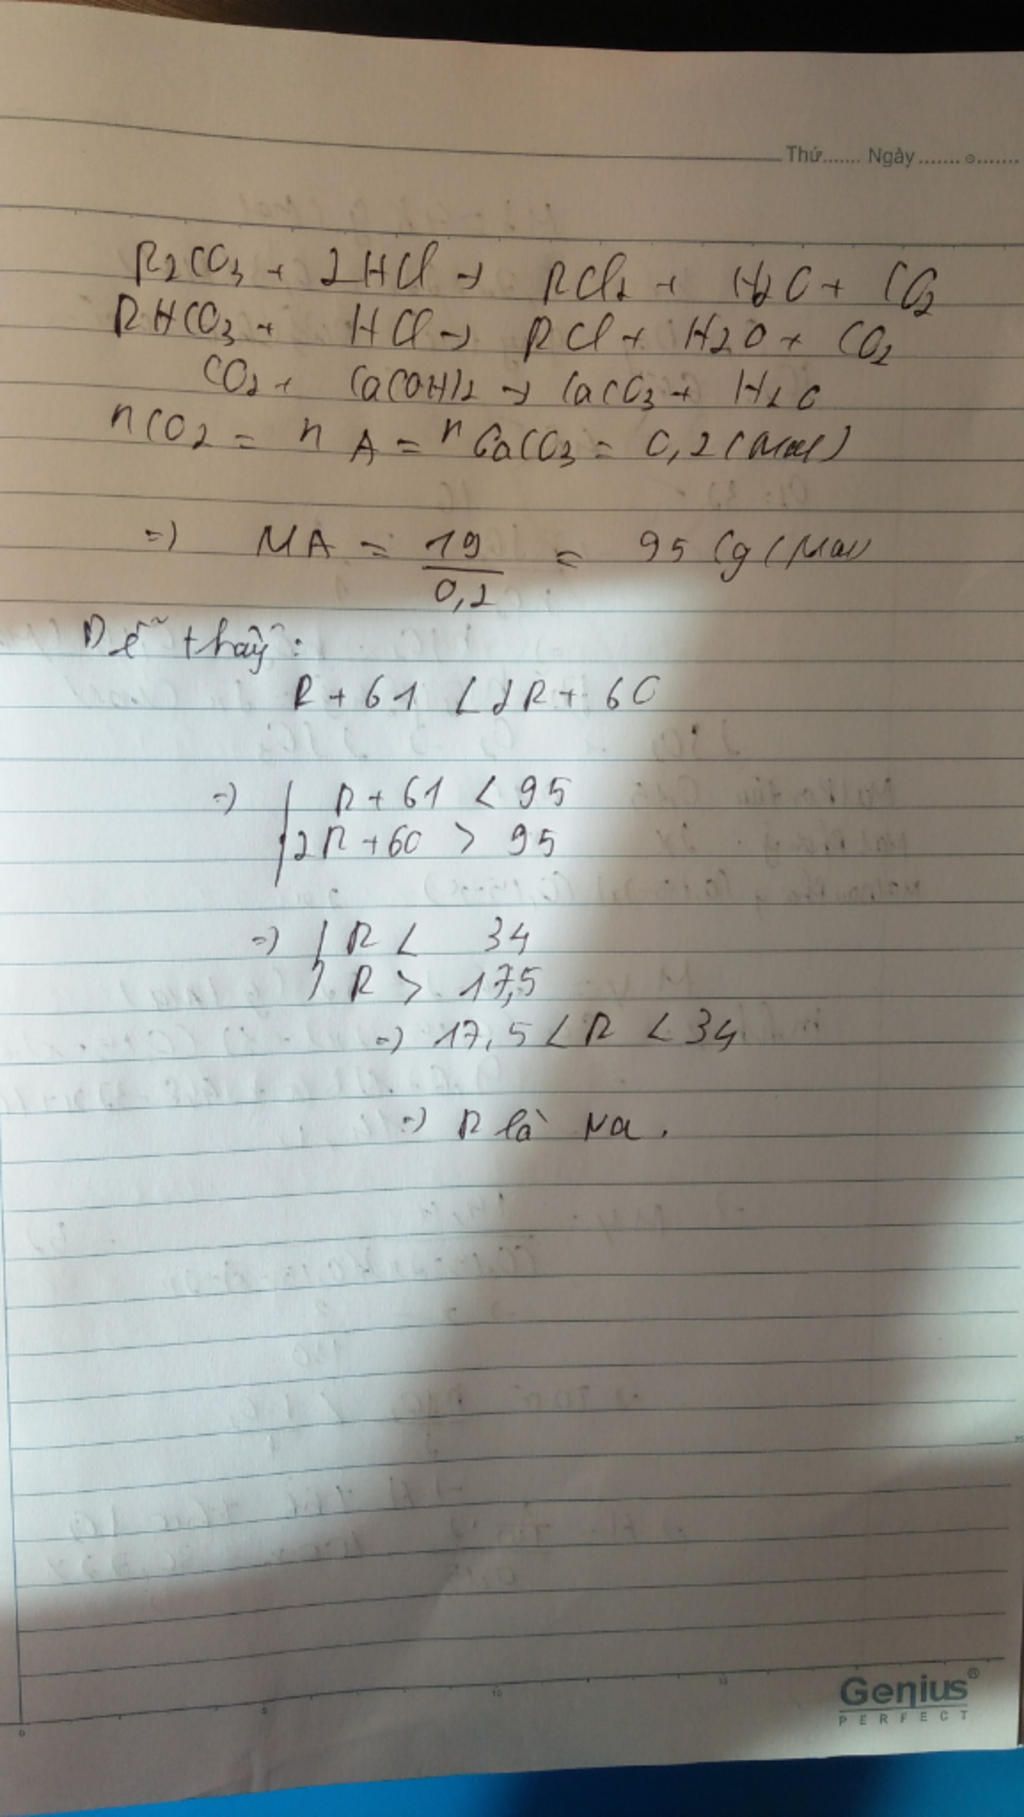 Thứ....... Ngày ....... ........
R2CO3 + 2HCl → RCl2 + H2O + CO2
RHCO3 + HCl → RCl + H2O + CO2
CO2 + Ca(OH)2 → CaCO3 + H2O
nCO2 = nA = nCaCO3 = 0,2 (Mol)
=) MA = 19/0,2 = 95 (g/Mol)
Dễ thấy:
R + 61 < 2R + 60
=) { R + 61 < 95
2R + 60 > 95
=) { R < 34
R > 17,5
=) 17,5 < R < 34
=) R là Na.
Genius®
PERFECT